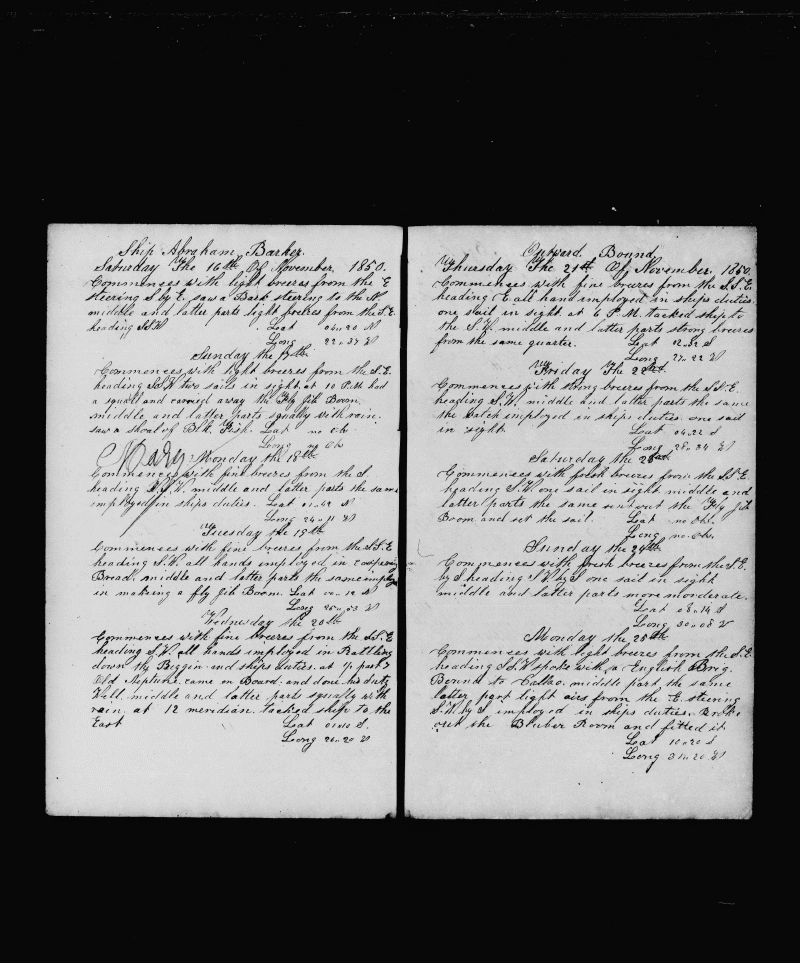 Ship Abraham Barker.
Saturday The 16th Of November, 1850.
Commences with light breezes from the E
steering S by E. saw a Bark steering to the N
middle and latter parts light breezes from the S.E.
heading S.W. Laat 04..20 N
Long 22..37 W
Sunday the 17th
Commences with light breezes from the S.E.
heading two sails in sight at 10 P.M. had
a squall and carried away the Fly Jib Boom.
middle and latter parts squally with rain.
saw a shoal of Blk. Fish. Laat no Obs
Long no Obs
Mary Monday the 18th
Commences with fine breezes from the S
heading middle and latter parts the same
imployed in ships duties. Laat N
Long W
Tuesday the 19th
Commences with fine breezes from the S.S.E
heading S.W. all hands imployed in
Bread. middle and latter parts the same imployed
in making a fly Jib Boom. Laat
Long W
Wednesday the 20th
Commences with fine breezes from the S.S.E
heading S.W. all hands imployed in Rattling
down the Riggin and ships duties. at part 7
Old Neptune came on Board. and done his duty
Well. middle and latter parts squally with
rain. at 12 meridian. tacked ship to the
East Laat S.
Long 26..20 W
Outward Bound
Thursday The 21st Of November, 1850.
Commences with fine breezes from the S.S.E.
heading E all hand imployed in ships duties.
one sail in sight. at 6 P.M. tacked ship to
the S.W. middle and latter parts strong breezes
from the same quarter. Laat S
Long 27..22 W
Friday The 22nd
Commences with strong breezes from the S.S.E.
heading S.W. middle and latter parts the same
the watch imployed in ships duties. one sail
in sight Laat 04..22 S
Long 28..34 W
Saturday the
Commences with fresh breezes from the S.S.E
heading S.W. one sail in sight. middle and
latter parts the same sent out the Fly Jib
Boom and set the sail. Laat no Obs.
Long no Obs.
Sunday the 24th
Commences with fresh breezes from the S.E.
by S heading S.W. by S one sail in sight
middle and latter parts more monderate.
Laat 08..14 S
Long 30..08 W
Monday the 25th
Commences with light breezes from the S.E.
heading spoke with a English Brig.
Bound to Callao. middle part the same
latter part light airs from the E. steering
S.W. by S imployed in ships duties. Broke
out the Bluber Room and fitted it
Laat 10..20 S
Long W